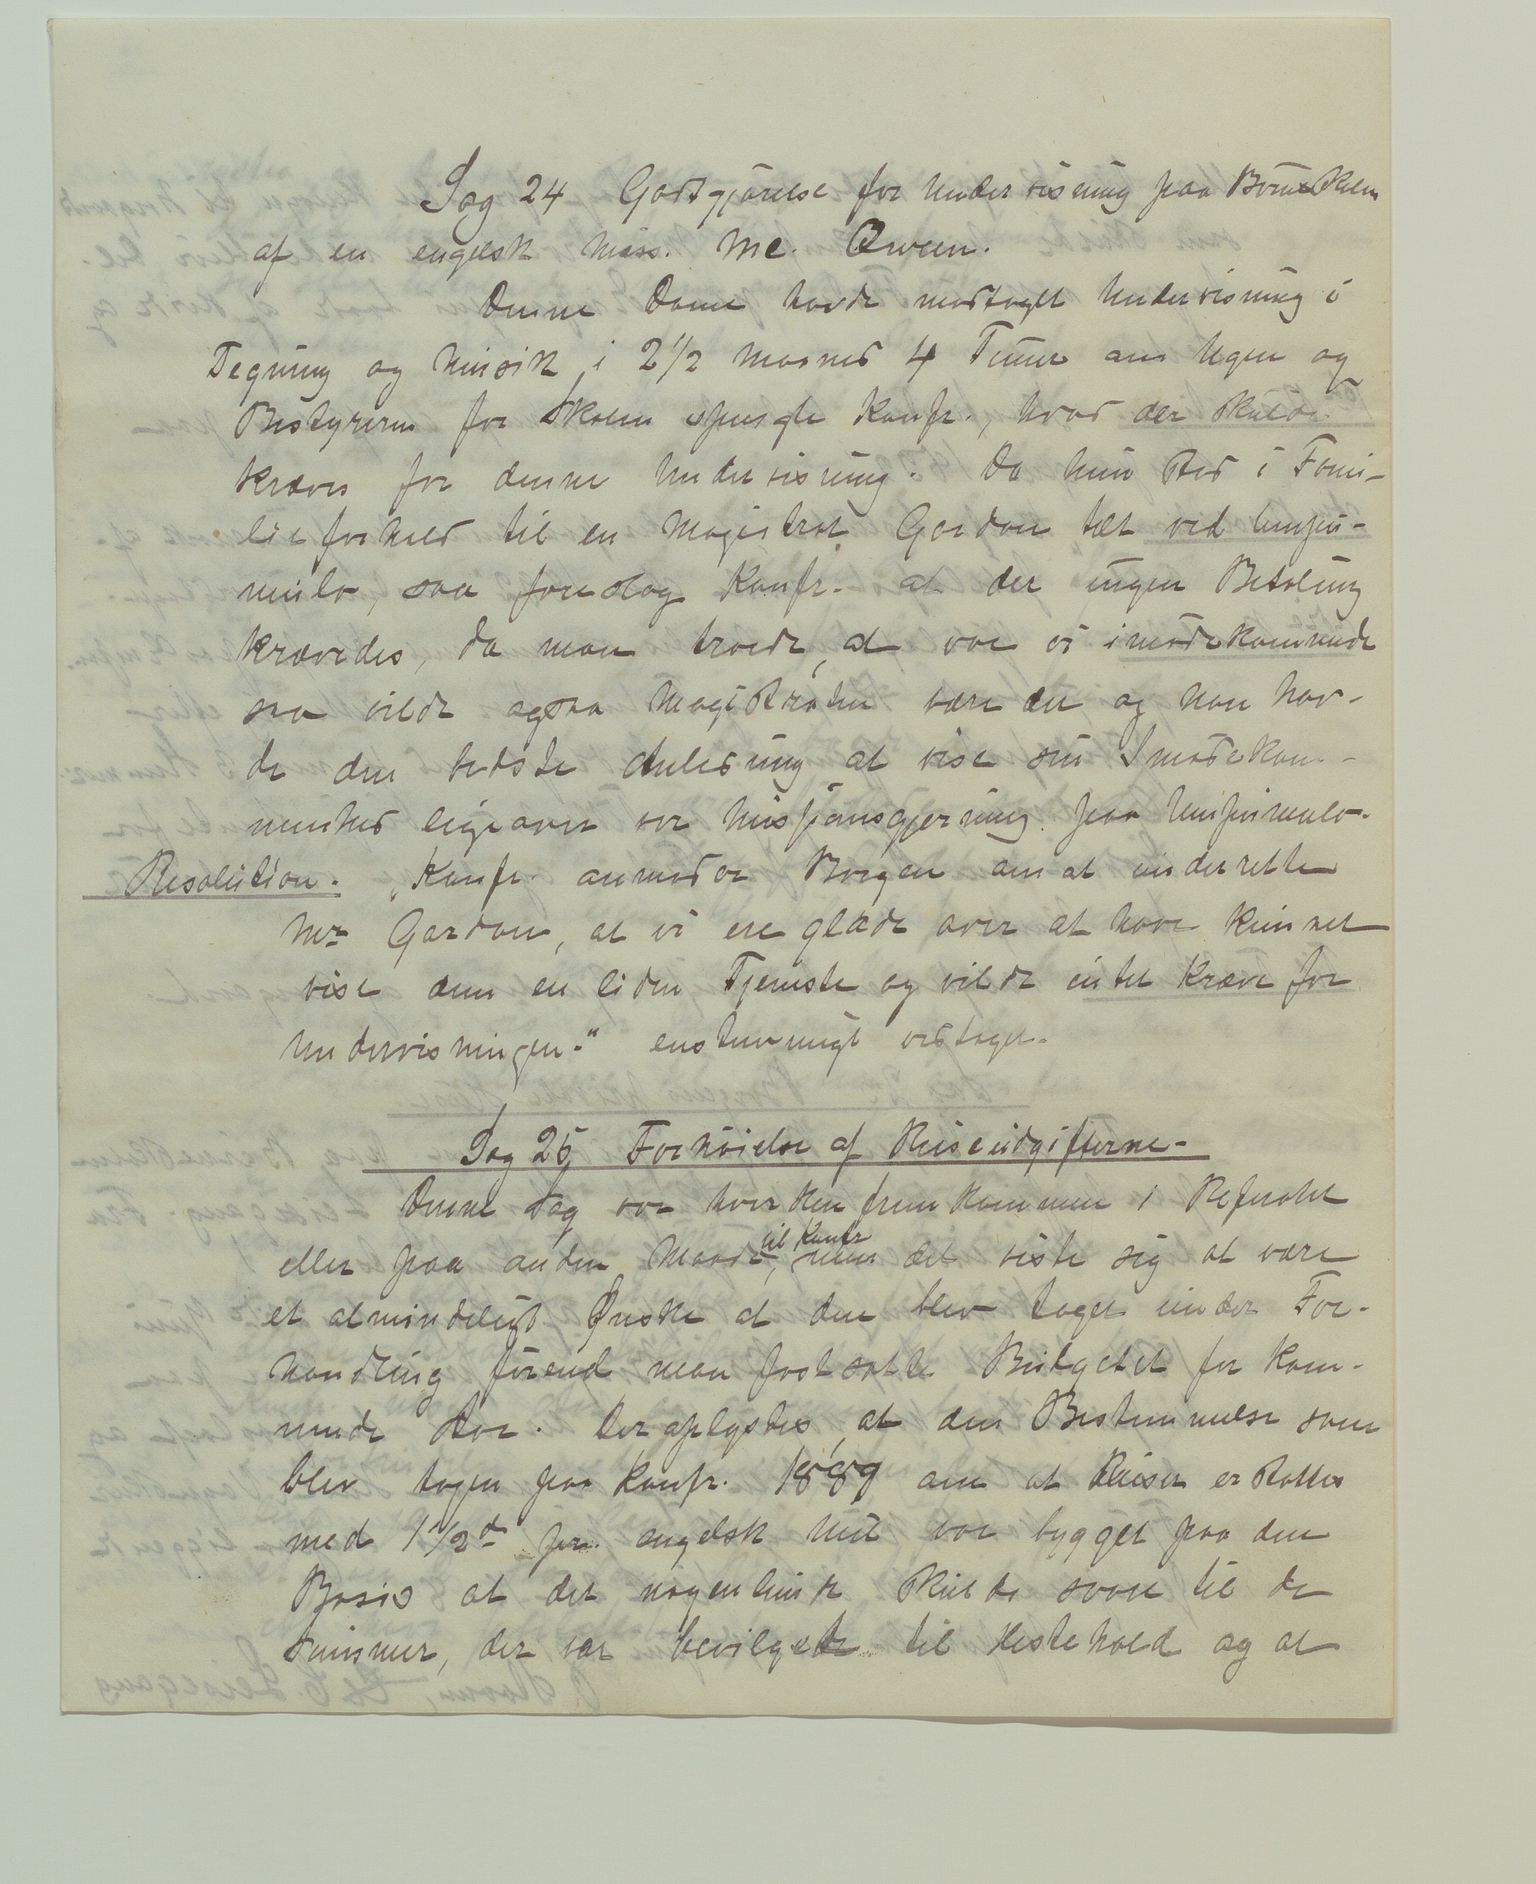 Sag 24 Godtgjörelse for Undervisning paa Börneskolen
af en engelsk Miss. Mc. Owen.
Denne Dame havde modtaget Undervisning i
Tegning og Musik i 2 1/2 Maaned 4 Timer om Ugen og
Bestyreren for Skolen spurgte Konfr., hvad der skulde
kræves for denne Undervisning. Da hun stod i Fami-
lieforhold til en Magistrat Gordon tæt ved Umpu-
mulo, saa foreslog Konfr. at der ingen Betaling
krævedes, da man troede, at var vi imödekommende
saa vilde ogsaa Magistraten være det og han hav-
de den bedste Anledning at vise sin Imödekom-
menhed ligeover vor Missionsgjerning paa Umpumulo.
Resolution. "Konfr. anmoder Borgen om at underrette
Mr Gordon, at vi ere glade over at have kunnet
vise dem en liden Tjeneste og vilde intet kræve for
Undervisningen." enstemmigt vedtaget.
Sag 25 Forhöielse af Reiseudgifterne-
Denne Sag var hverken fremkommen i Referatet
eller paa anden Maade til Konfr, men det viste sig at være
et almindeligt Ønske at den blev taget under For-
handling förend man fastsatte Budgetet for kom-
mende Aar. Der oplystes, at den Bestemmelse som
blev tagen paa Konfr. 1889 om at Reiser erstattes
med 1 1/2 d pr. engelsk Mil var bygget paa den
Basis at det nogenlunde skulde svare til de
Summer, der var bevilgede til Hestehold og at